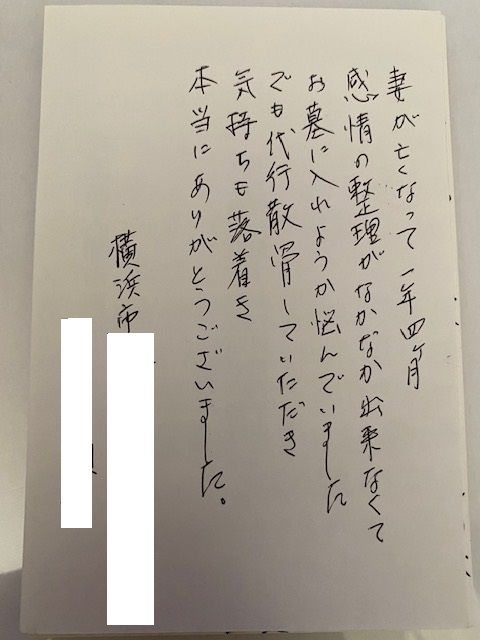 妻が亡くなって一年四ヶ月
感情の整理がなかなか出来なくて
お墓に入れようか悩んでいました
でも代行散骨していただき
気持ちも落着き
本当にありがとうございました。
横浜市